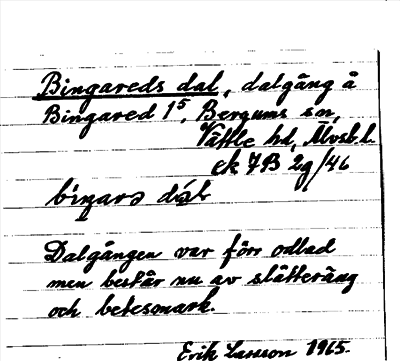 Bingareds dal, dalgång å
Bingared 1⁵, Bergums sn,
Vättle hd, Älvsb. l.
ek 7B 2g/46
Dalgången var förr odlad
men består nu av slåtteräng
och betesmark.
Erik Larsson 1965.